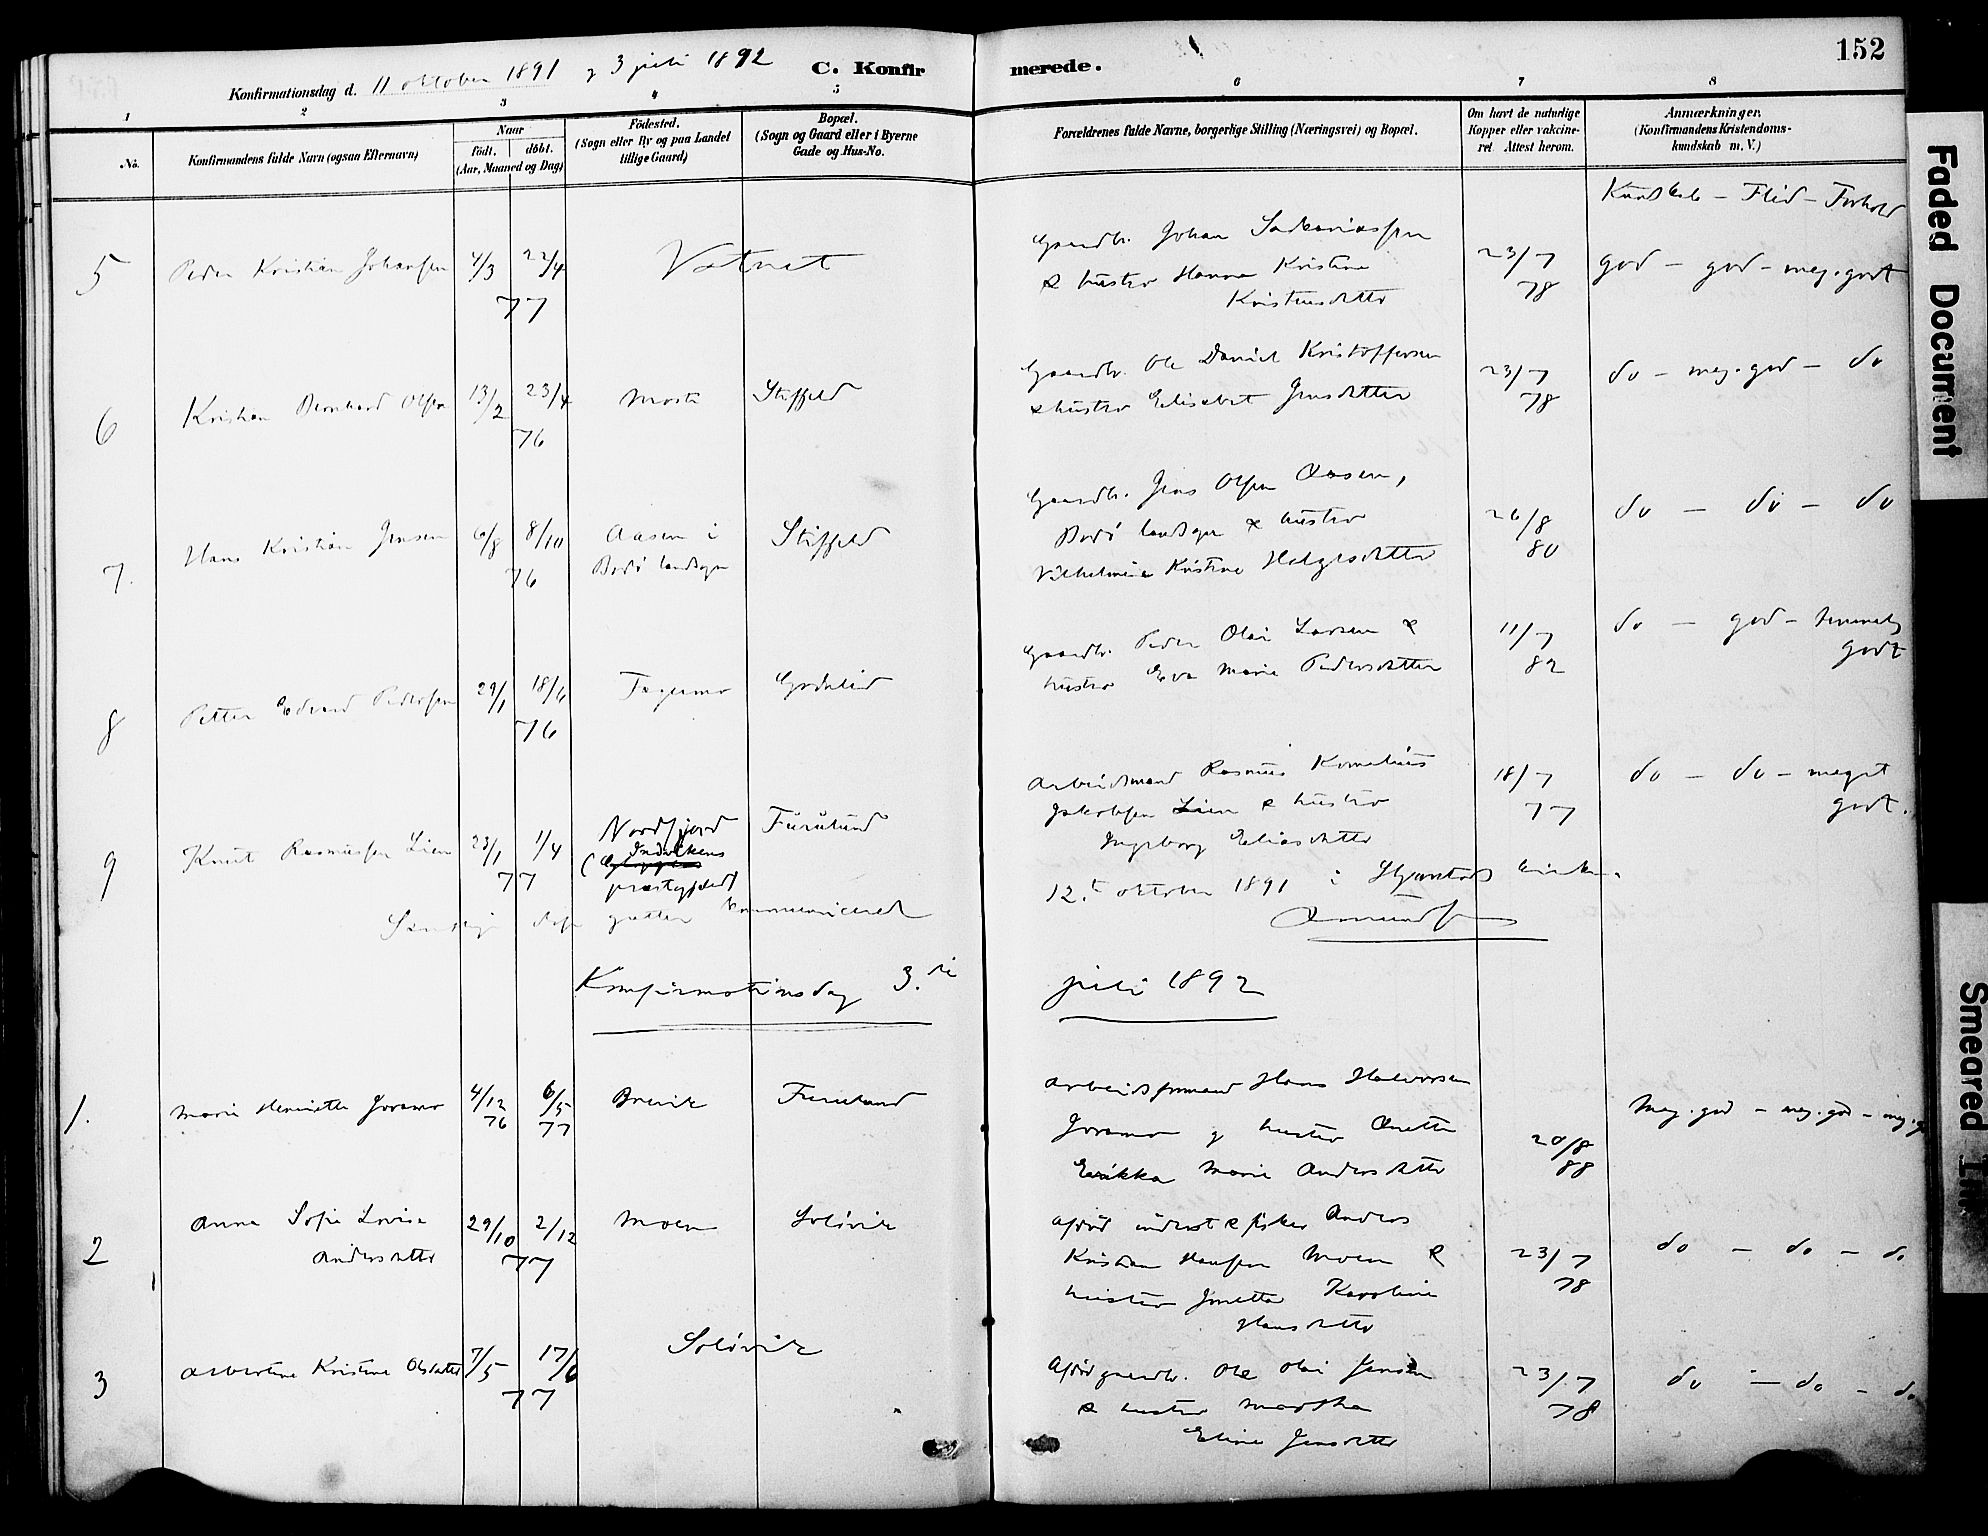 152
Konfirmationsdag d. 11 oktober 1891 og 3 juli 1892 C. Konfirmerede.
1 2 3 4 5 6 7 8
No.
Konfirmandens fulde Navn (ogsaa Efternavn)
Naar
födt. döbt.
(Aar, Maaned og Dag)
Födested.
(Sogn eller By og paa Landet
tillige Gaard)
Bopæl.
(Sogn og Gaard eller i Byerne
Gade og Hus-No.
Forældrenes fulde Navne, borgerlige Stilling (Næringsvei) og Bopæl.
Om havt de naturlige
Kopper eller vakcineret. Attest herom.
Anmærkninger.
(Konfirmandens Kristendomskundskab m. V.)
Kundskab - Flid - Forhold
5 Peder Kristian Johansen 4/3 22/4 77 Vatnet
Gaardbr. Johan
& hustro Hanna Kristine
Kristensdatter
23/7 78
god - god - meg. godt
6 Kristian Bernhard Olsen 13/2 23/4 76 Stifjeld
Gaardbr. Ole Daniel Kristoffersen
& hustro Elisabet Jensdatter
23/7 78
do - meg. god - do
7. Hans Kristian Jensen 6/8 8/10 76 Aasen i
Bodö landsogn
Stifjeld
Gaardbr. Jens Olsen Aasen,
Bodö landsogn & hustro
Vilhelmine Kristine Helgesdatter
26/8 80
do - do - do
8 Petter Edvard Pedersen 29/1 18/6 76
Gaardbr. Peder Olai Larsen &
hustro Eva Marie Pedersdatter
11/7 82
do - god - temmelig
godt
9 Knut Rasmussen Lien 23/1 1/4 77 Nordfjord
(Indvikens
præstegjeld)
Furulund
Arbeidsmand Rasmus Kornelius
Jakobsen Lien & hustro
Ingeborg Eliasdatter
18/7 77
do - do - meget
godt.
gutter kommunicered 12.te oktober 1891 i
Konfirmationsdag 3.die juli 1892
1. Marie Henriette Joramo 4/12 76 6/5 77 Brevik Furulund
Arbeidsformand Hans Halvorsen
Joramo og hustro Anette
Erikka Marie Andersdatter
20/8 88
Meg. god - meg. god - meg. g
2 Anna Sofie Lovise
Andersdatter
29/10 2/12 77 Moen Solövik
Afdöd inderst & fisker Anders
Kristian Hansen Moen &
hustro Jonetta Karoline
Hansdatter
23/7 78
do - do - do
3 Albertine Kristine Olsdatter 7/5 17/6 77 Solövik
Afdöd gaardbr. Ole Olai Jensen
& hustro Martha
Eline Jensdatter
23/7 78
do - do - do
Faded Document
Smeared Ink